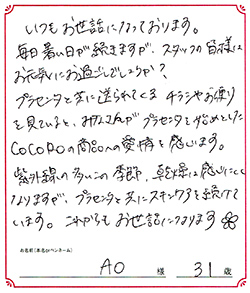 いつもお世話になっております。
毎日暑い日が続きますが、スタッフの皆様は
お元気にお過ごしでしょうか？
プラセンタと共に送られてくるチラシやお便り
を見ていると、みなさんがプラセンタを始めとした
CoCoRoの商品への愛情を感じます。
紫外線の多いこの季節、乾燥は感じにくく
なりますが、プラセンタと共にスキンケアを続けて
います。これからもお世話になります
お名前(本名orペンネーム)
AO 様 31 歳